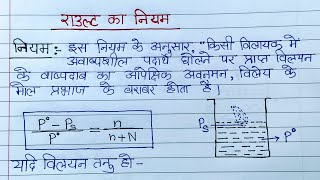 राउल्ट का नियम
नियम :- इस नियम के अनुसार, "किसी विलायक में
अवाष्पशील पदार्थ घोलने पर प्राप्त विलयन
के वाष्पदाब का आपेक्षिक अवनमन, विलेय के
मोल प्रभाज के बराबर होता है।
P° - Ps / P° = n / n+N
Ps
P°
यदि विलयन तनु हो -